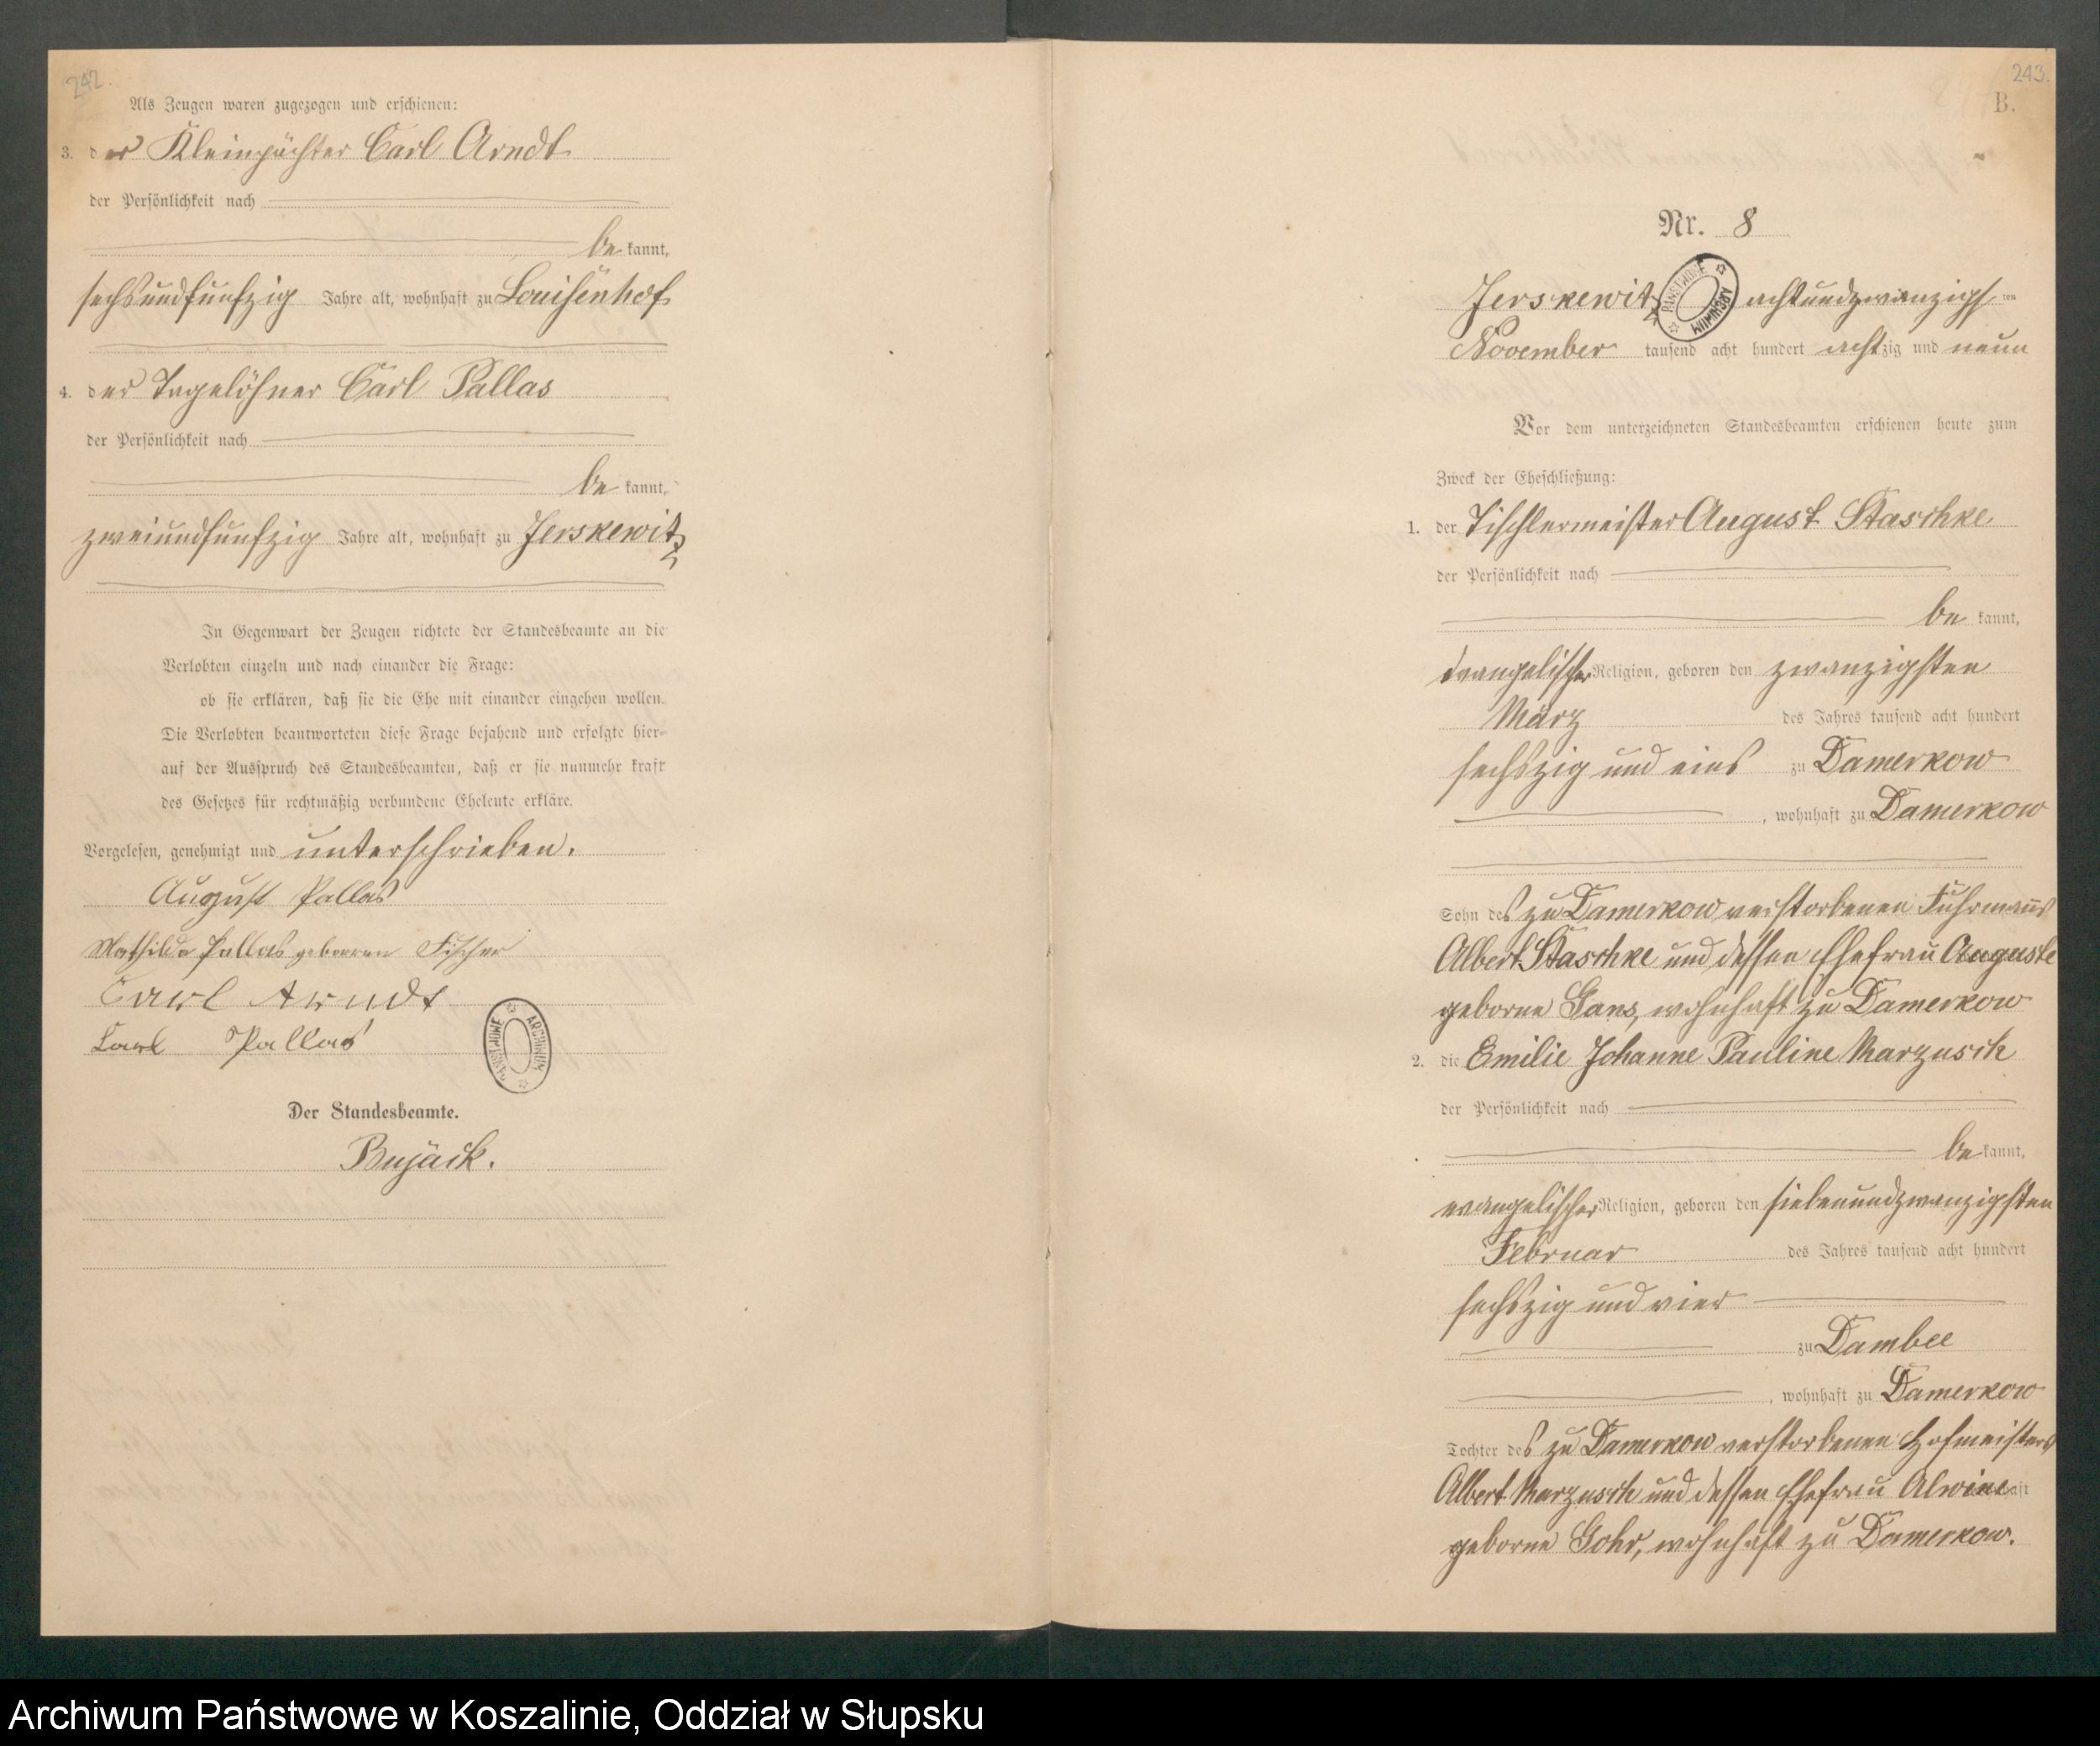 242.
Als Zeugen waren zugezogen und erschienen:
3. der Kleinpächter Carl Arndt
der Persönlichkeit nach
be kannt,
sechsundfünfzig Jahre alt, wohnhaft zu Louisenhof
4. der Tagelöhner Carl Pallas
der Persönlichkeit nach
be kannt,
zweiundfünfzig Jahre alt, wohnhaft zu Jerskewitz
In Gegenwart der Zeugen richtete der Standesbeamte an die
Verlobten einzeln und nach einander die Frage:
ob sie erklären, daß sie die Ehe mit einander eingehen wollen.
Die Verlobten beantworteten diese Frage bejahend und erfolgte hier-
auf der Ausspruch des Standesbeamten, daß er sie nunmehr kraft
des Gesetzes für rechtmäßig verbundene Eheleute erkläre.
Vorgelesen, genehmigt und unterschrieben.
August Pallas
Mathilde Pallas geborren Fischer
Carl Arndt
Carl Pallas
ARCHIWUM PAŃSTWOWE
Der Standesbeamte.
Bujäck.
243.
B.
Nr. 8
Jerskewitz, achtundzwanzigsten
ARCHIWUM PAŃSTWOWE
November tausend acht hundert achtzig und neun
Vor dem unterzeichneten Standesbeamten erschienen heute zum
Zweck der Eheschließung:
1. der Tischlermeister August Staschke
der Persönlichkeit nach
be kannt,
evangelischer Religion, geboren den zwanzigsten
März des Jahres tausend acht hundert
sechszig und eins zu Damerkow
, wohnhaft zu Damerkow
Sohn des zu Damerkow verstorbenen Fuhrmanns
Albert Staschke und dessen Ehefrau Auguste
geborne Gans, wohnhaft zu Damerkow
2. die Emilie Johanne Pauline Marzusch
der Persönlichkeit nach
be kannt,
evangelischer Religion, geboren den siebenundzwanzigsten
Februar des Jahres tausend acht hundert
sechszig und vier
zu Dambee
, wohnhaft zu Damerkow
Tochter des zu Damerkow verstorbenen Hofmeisters
Albert Marzusch und dessen Ehefrau Alwine
geborne Gohr, wohnhaft zu Damerkow.
Archiwum Państwowe w Koszalinie, Oddział w Słupsku